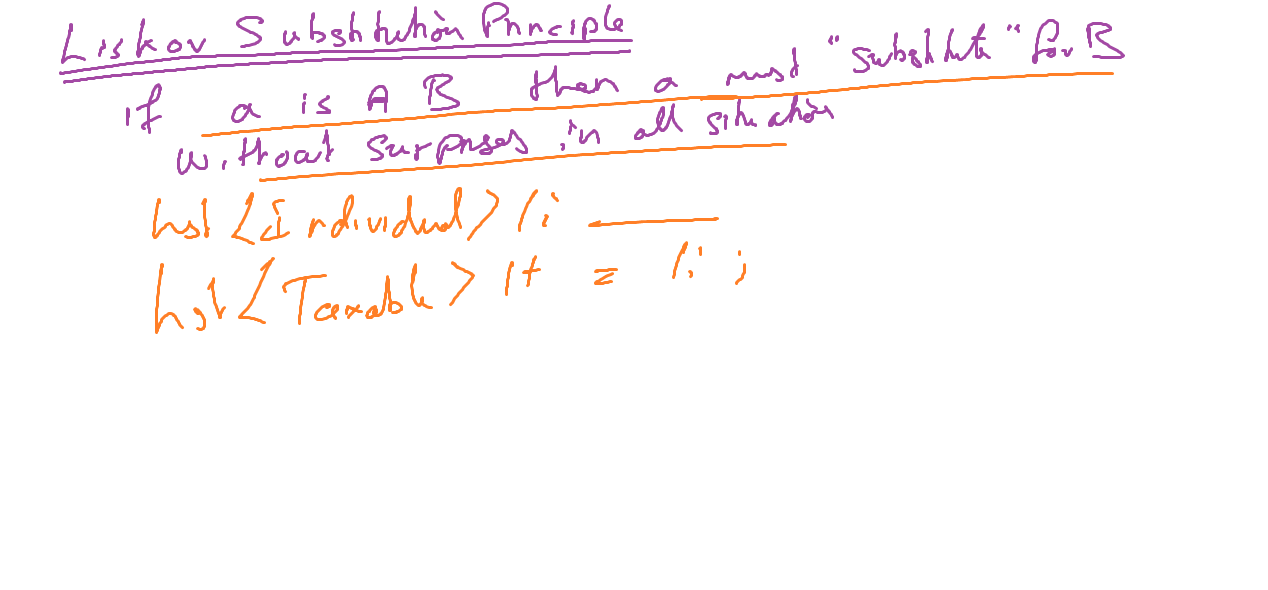 Liskov Substitution Principle
if a is A B then a must "substitute" for B
without surprises in all situation
List<Individual> li
List<Taxable> lt = li;